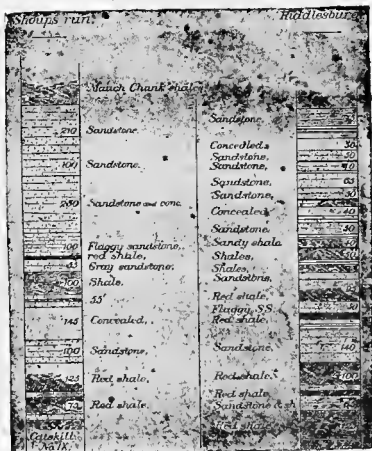 Shoups run.
Riddlesburg
Mauch Chunk shale
210 Sandstone.
100 Sandstone.
250 Sandstone and conc.
100 Flaggy sandstone,
red shale,
53 Gray sandstone,
100 Shale.
55'
145 Concealed,
100 Sandstone,
125 Red shale,
73 Red shale.
Catskill
No IX.
Sandstone,
Concealed. 30
Sandstone, 50
Sandstone,
Sandstone, 65
Sandstone, 50
Concealed 40
Sandstone. 50
Sandy shale 40
Shales,
Shales,
Sandstone,
Red shale,
Flaggy, SS
Red shale
Sandstone, 140
Red shale. 100
Red shale
Sandstone & sh.
Red shale